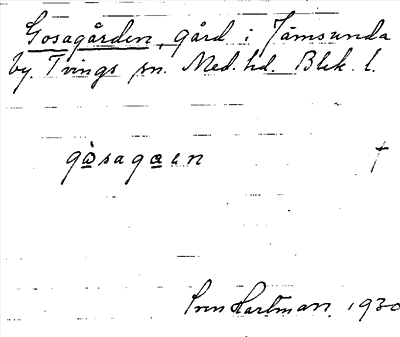 Gosagården, gård i Jämsunda
by. Tvings sn. Med. hd. Blek. l.
gòsagɑen †
Sven Hartman, 1930